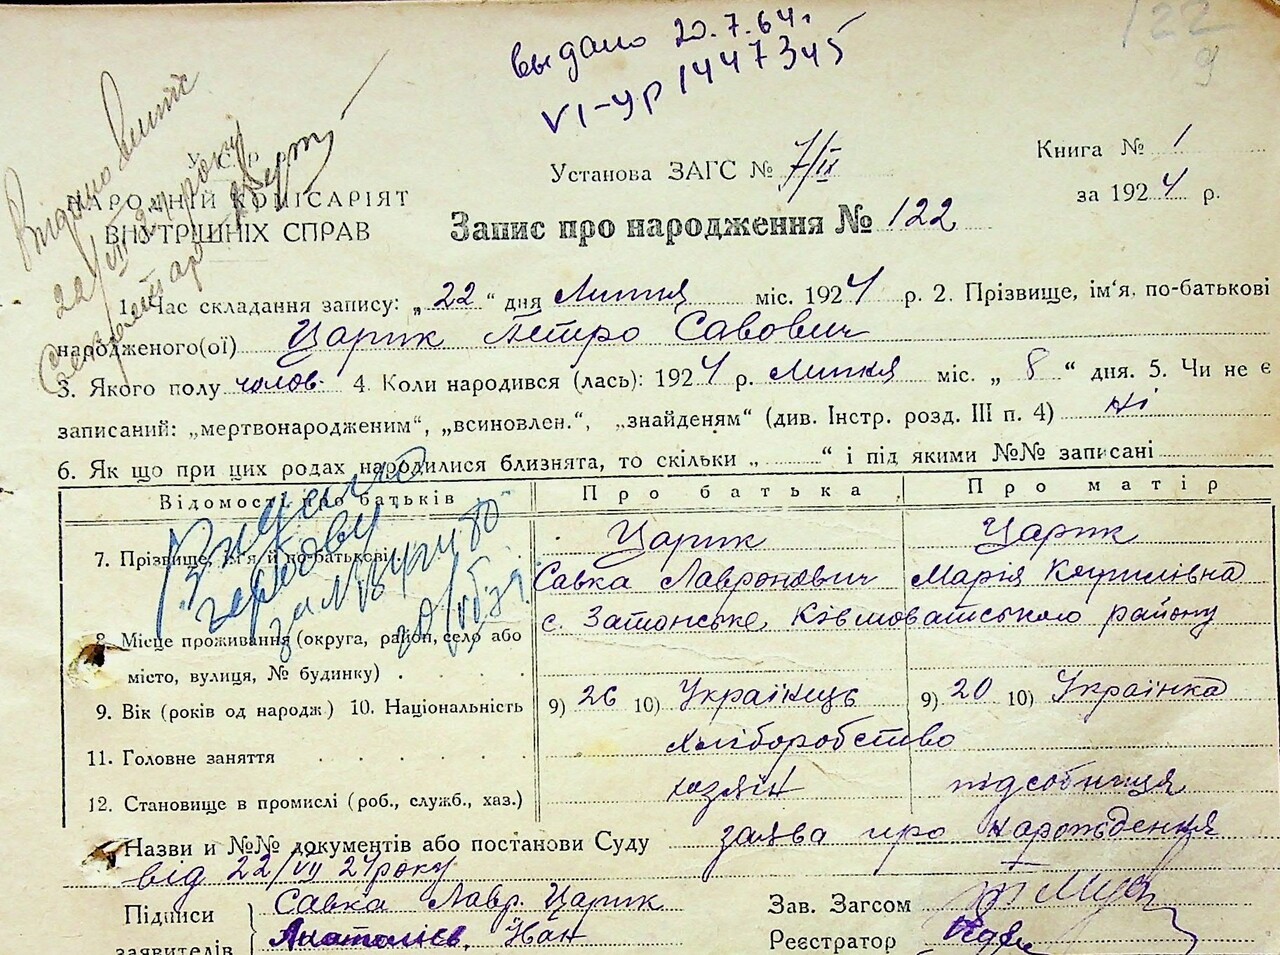 выдано 20.7.64 г
VI-УР 1447345
122
9
Видано витяг
22/VII 24 року
Секретар
У. С. Р. Р.
НАРОДНІЙ КОМІСАРІЯТ
ВНУТРІШНІХ СПРАВ
Установа ЗАГС № 7/ІХ
Книга № 1
за 1924 р.
Запис про народження № 122
1. Час складання запису: „22“ дня Липня міс. 1924 р. 2. Прізвище, ім'я, по-батькові
народженого(ої) Царик Петро Савович
3. Якого полу чолов. 4. Коли народився (лась): 1924 р. липня міс. „8“ дня. 5. Чи не є
записаний: „мертвонародженим“, „всиновлен.“, „знайденям“ (див. Інстр. розд. III п. 4) ні
6. Як що при цих родах народилися близнята, то скільки „ “ і під якими №№ записані
Відомості про батьків Про батька Про матір
7. Прізвище, ім'я й по-батькові
Царик Царик
Савка Лавронович Марія Кирилівна
8. Місце проживання (округа, район, село або
місто, вулиця, № будинку)
с. Затонське, Ківшоватського району
9. Вік (років од народж) 10. Національність 9) 26 10) Українець 9) 20 10) Українка
11. Головне заняття хліборобство
12. Становище в промислі (роб., служб., хаз.) хазяїн підсобниця
Назви и №№ документів або постанови Суду заява про народження
від 22/VII 24 року
Підписи
заявителів
Савка Лавр. Царик
Зав. Загсом
Реєстратор